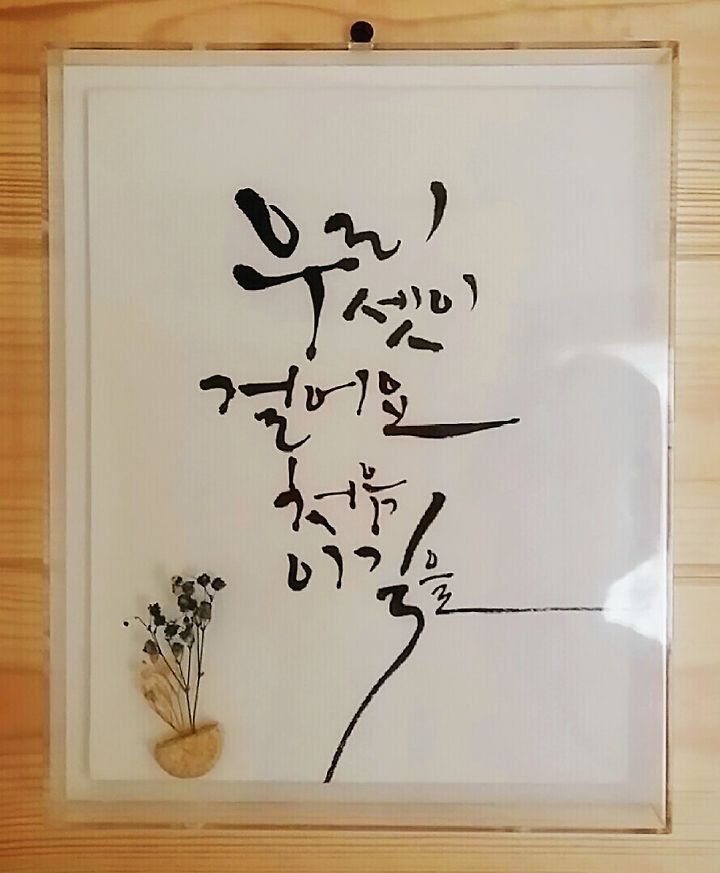 우리
셋이
걸어요
처음
이 길을